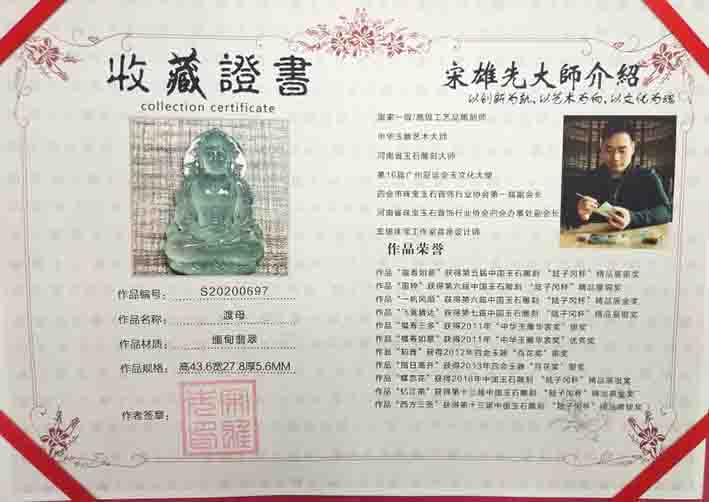 收藏證書
collection certificate
作品编号: S20200697
作品名称: 渡母
作品材质: 缅甸翡翠
作品规格: 高43.6宽27.8厚5.6MM
作者签章:
宋雄先大師介紹
以创新为轨、以艺术为向、以文化为魂
国家一级/高级工艺品雕刻师
中华玉雕艺术大师
河南省玉石雕刻大师
第16届广州亚运会玉文化大使
四会市珠宝玉石首饰行业协会第一届副会长
河南省珠宝玉石首饰行业协会四会办事处副会长
宏雄珠宝工作室首席设计师
作品荣誉
作品“福寿如意”获得第五届中国玉石雕刻 “陆子冈杯”精品展银奖
作品 获得第六届中国玉石雕刻 “陆子冈杯”精品展铜奖
作品“一帆风顺”获得第六届中国玉石雕刻 “陆子冈杯”精品展金奖
作品“飞黄腾达”获得第七届中国玉石雕刻 “陆子冈杯”精品展银奖
作品“福寿三多”获得2011年“中华玉雕华表奖”银奖
作品“福寿如意”获得2011年“中华玉雕华表奖”优秀奖
作品 获得2012年四会玉器“百花奖”铜奖
作品“旭日高升”获得2013年四会玉器“百花奖”银奖
作品“蝶恋花”获得2016年中国玉石雕刻 “陆子冈杯”精品展银奖
作品“忆江南”获得第十三届中国玉石雕刻 “陆子冈杯”精品展金奖
作品“西方三圣”获得第十三届中国玉石雕刻 “陆子冈杯”精品展银奖